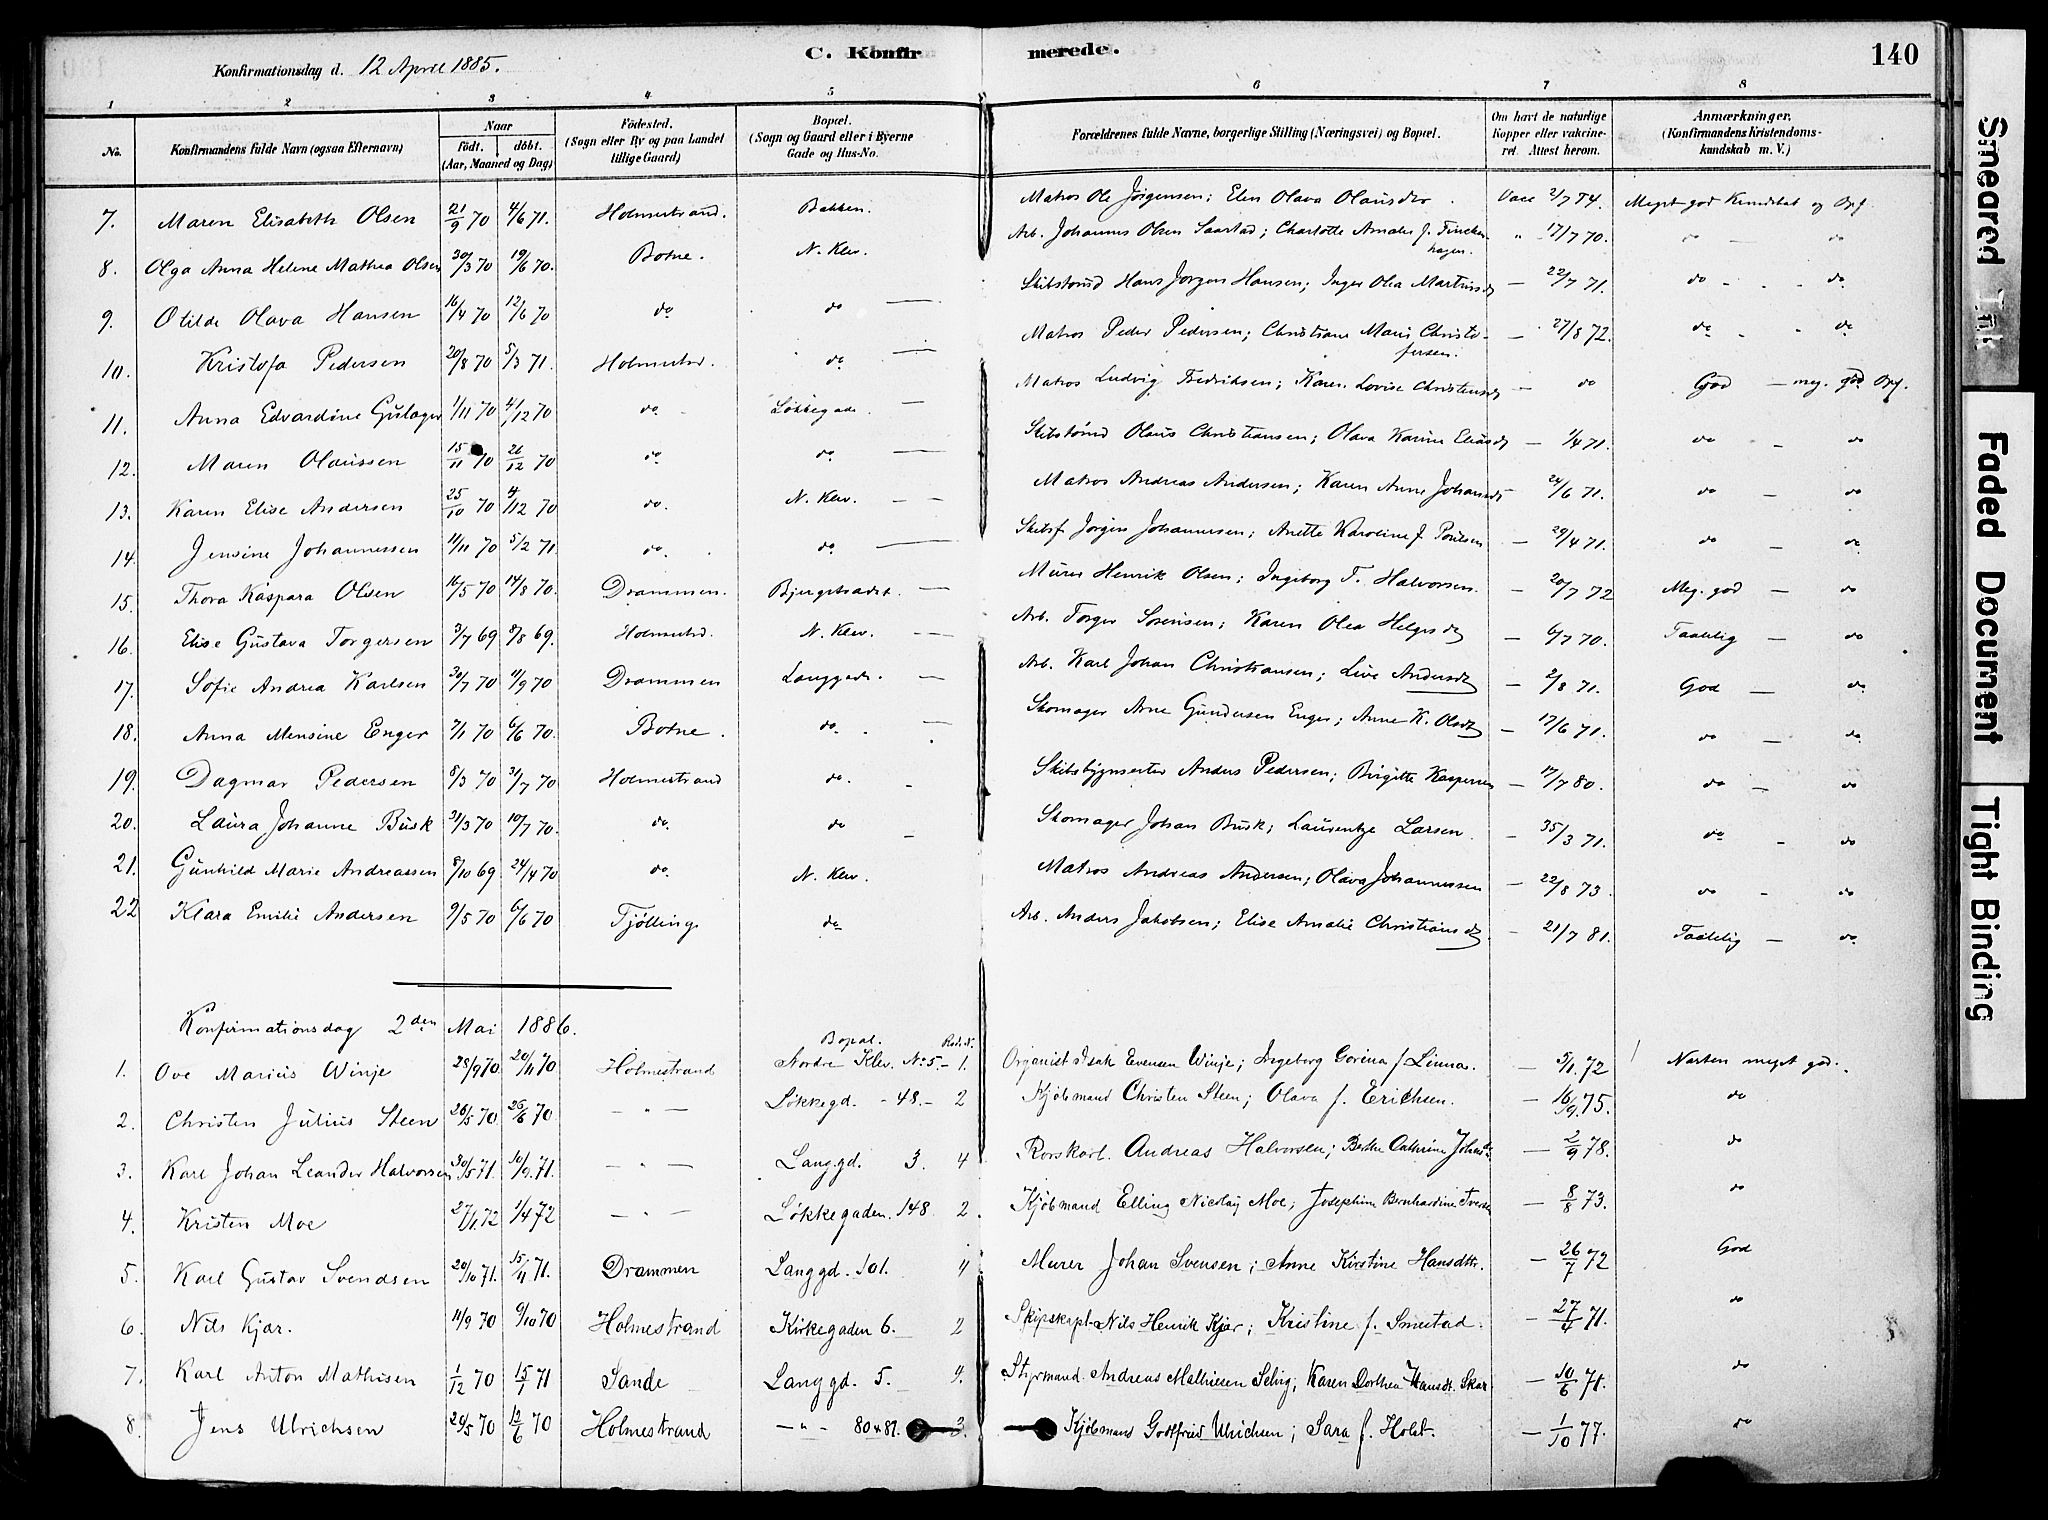 Konfirmationsdag d. 12 April 1885. C. Konfirmerede. 140
1 2 3 4 5 6 7 8
No. Konfirmandens fulde Navn (ogsaa Efternavn) Naar födt. döbt. (Aar, Maaned og Dag) Födested. (Sogn eller By og paa Landet tillige Gaard) Bopæl. (Sogn og Gaard eller i Byerne Gade og Hus-No. Forældrenes fulde Navne, borgerlige Stilling (Næringsvei) og Bopæl. Om havt de naturlige Kopper eller vakcineret. Attest herom. Anmærkninger. (Konfirmandens Kristendomskundskab m. V.)
7. Maren Elisabeth Olsen 21/9 70 4/6 71. Holmestrand. Bakken. Matros Ole Jörgensen; Elen Olava Olausdtr. Vacc 2/7 74. Meget god Kundskab og Opf.
8. Olga Anna Helene Mathea Olsen 30/3 70 19/6 70. Botne. N. Klev. Arb. Johannes Olsen Saastad; Charlotte Amalie f. Finckenhagen. " 17/7 70. do — do
9. Otilde Olava Hansen 16/4 70 12/6 70 do do — Skibstømd Hans Jörgen Hansen; Inger Olea Martinsd — 22/7 71. do - - - do
10. Kristofa Pedersen 20/8 70 5/3 71. Holmestrd. do — Matros Peder Pedersen; Christiane Marie Christofersen. — 27/8 72. do " " do
11. Anna Edvardine Gulager 1/11 70 4/12 70 do Løkkegade — Matros Ludvig Fredriksen; Karen Lovise Christensd — do God — meg. god Opf.
12. Maren Olaussen 15/11 70 26/12 70 do do — Skibstømd Olaus Christiansen; Olava Karine Eliasd — 1/4 71. do — do
13. Karen Elise Andersen 25/10 70 4/12 70 do. N. Klev. — Matros Andreas Andersen; Karen Anne Johansd — 24/6 71. do — do
14. Jensine Johannessen 11/11 70 5/2 71. do. do — Skibsf. Jørgen Johannesen; Anette Karoline f. Poulsen — 29/4 71. do — do
15. Thora Kaspara Olsen 16/5 70 14/8 70. Drammen. Bjergstrædet. — Murer Henrik Olsen; Ingeborg T. Halvorsen. — 20/7 72 Meg. god — do
16. Elise Gustava Torgersen 3/7 69 8/8 69. Holmestrd. N. Klev. — Arb. Torger Sørensen; Karen Olea Helgesd — 6/7 70. Taalelig — do
17. Sofie Andrea Karlsen 30/7 70 11/9 70 Drammen Langgade. — Arb. Karl Johan Christiansen; Live Andersd — 2/8 71. God — do
18. Anna Mensine Enger 7/1 70 6/6 70. Botne. do. — Skomager Arne Gundersen Enger; Anne K. Olsd — 17/6 71. do — do
19. Dagmar Pedersen 8/3 70 31/7 70 Holmestrand do. - Skibsbygmester Anders Pedersen; Birgitte Kaspersen — 17/7 80. do — do
20. Laura Johanne Busk 31/3 70 10/7 70. do. do — Skomager Johan Busk; Laurentze Larsen. — 35/3 71. do - do
21. Gunhild Marie Andreassen 8/10 69 24/4 70 do. N. Klev. Matros Andreas Andersen; Olava Johannessen — 22/8 73. do - do
22 Klara Emilie Andersen 9/5 70 6/6 70 Tjølling do Arb. Anders Jakobsen; Elise Amalie Christiansd. — 21/7 81. Taalelig — do
Konfirmationsdag 2den Mai 1886. Bopæl. Rod. N.
1. Ove Marius Winje 28/9 70 20/11 70 Holmestrand Nordre Klev. No 5.- 1. Organist Isak Evensen Winje; Ingeborg Gorina f. Linna. — 5/1. 72 Næsten meget god.
2. Christen Julius Steen 26/5 70 26/6 70 — " — Løkkegd. - 48. - 2 Kjöbmand Christen Steen; Olava f. Erichsen. — 16/9. 75. do
3. Karl Johan Leander Halvorsen 30/5 71. 10/9. 71. — " — Langgd. 3. 4 Rorskarl. Andreas Halvorsen; Berthe Cathrine Johansd. — 2/9 78. do
4. Kristen Moe 27/1 72 1/4 72 — " — Løkkegaden. 148 2. Kjöbmand Elling Nicolay Moe; Josephine Bernhardine Iversen — 8/8 73. do
5. Karl Gustav Svendsen 20/10 71. 15/11 71. Drammen Langgd. 101. 4 Murer Johan Svensen; Anne Kirstine Hansdtr. — 26/7 72 God
6. Nils Kjær. 11/9 70 9/10 70 Holmestrand Kirkegaden 6. 2 Skipskapt. Nils Henrik Kjær; Kristine f. Smestad. — 27/4 71. do
7. Karl Anton Mathisen 1/12 70 15/1 71 Sande Langgd. 5. 4. Styrmand. Andreas Mathiesen Selvig; Karen Dorthea Hansdt. Skar — 10/6 71. do
8. Jens Ulrichsen 20/5 70 12/6 70 Holmestrand — " - 80 & 81. 3. Kjöbmand Godtfried Ulrichsen; Sara f. Holst. — 1/10 77. do
Smeared Ink
Faded Document
Tight Binding